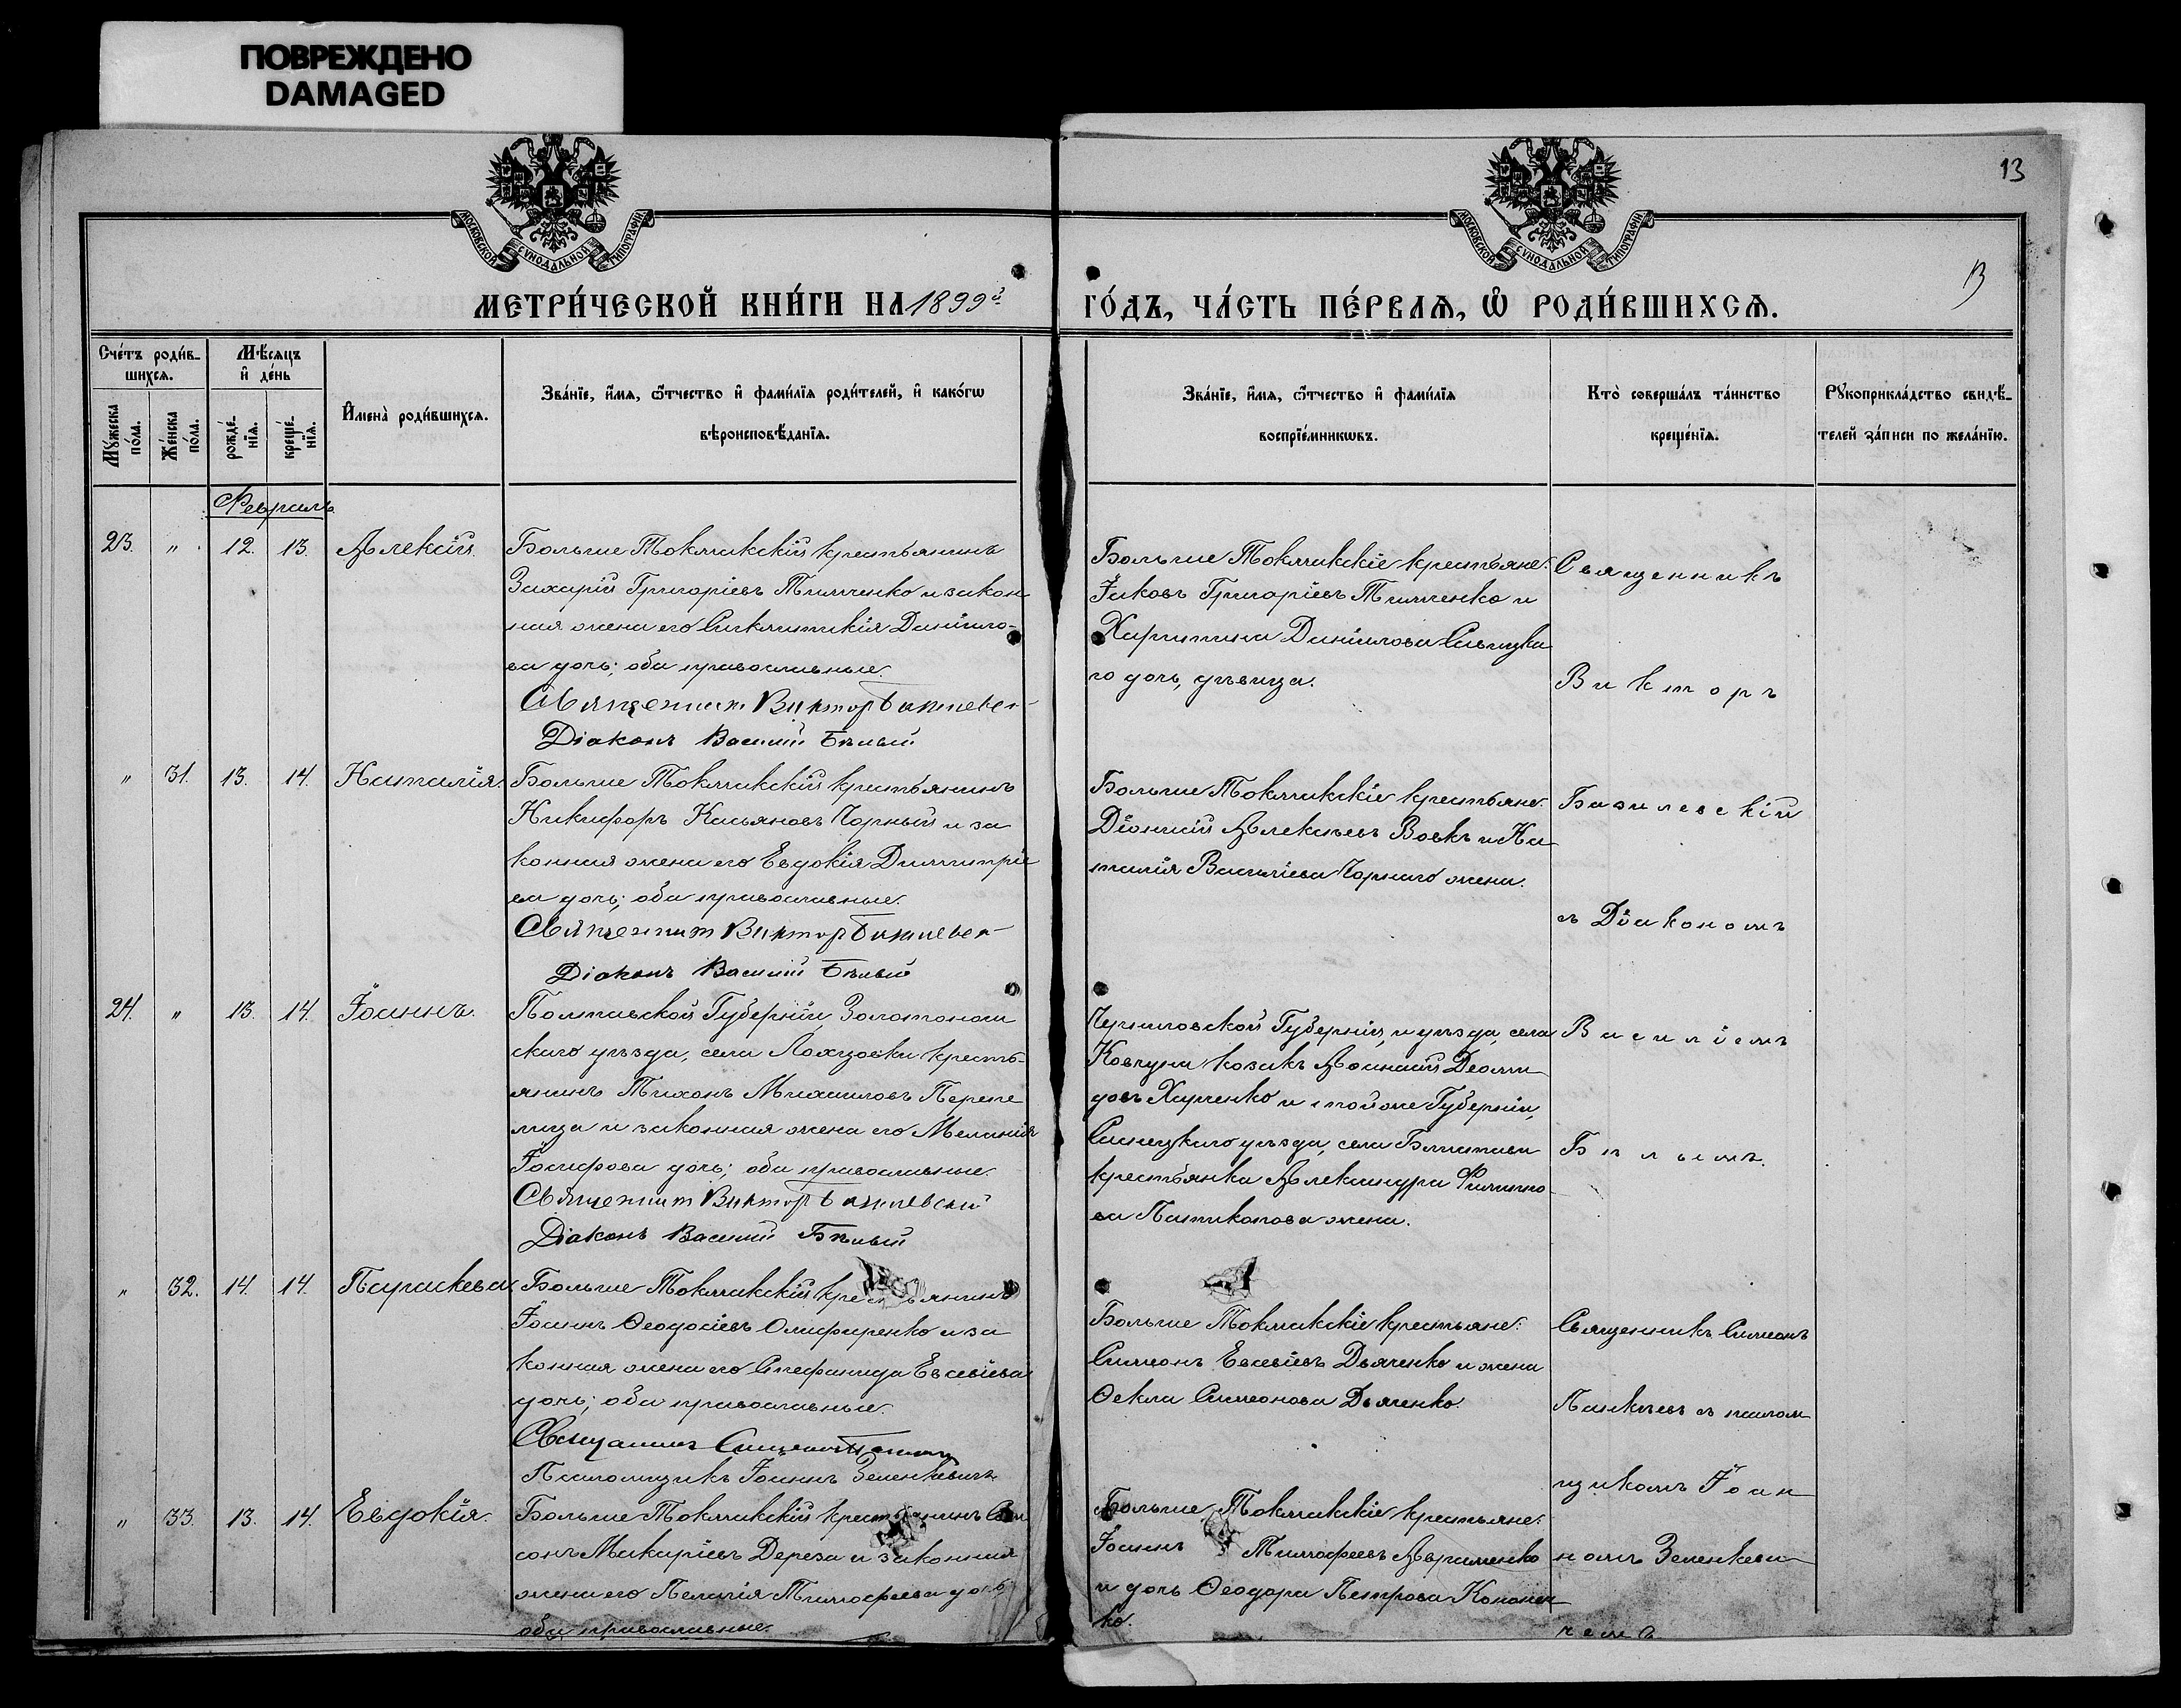 ПОВРЕЖДЕНО
DAMAGED
МОСКОВСКОЙ СѴНОДАЛЬНОЙ ТИПОГРАФІИ
МОСКОВСКОЙ СѴНОДАЛЬНОЙ ТИПОГРАФІИ
13
13
МЕТРИ́ЧЕСКОЙ КНИ́ГИ НА 1899й
ГО́ДЪ, ЧА́СТЬ ПЕ́РВАЯ, Ѿ РОДИ́ВШИХСЯ.
Сче́тъ роди́в-
шихся.
Мꙋ́жеска по́ла.
Же́нска по́ла.
Мѣ́сяцъ
и҆ де́нь
рожде́-
нїя.
креще́-
нїя.
И҆мена̀ роди́вшихся.
Зва́нїе, и҆́мя, ѻ҆́тчество и҆ фами́лїя роди́телей, и҆ како́гѡ
вѣроисповѣ́данїя.
Зва́нїе, и҆́мя, ѻ҆́тчество и҆ фами́лїя
воспрїе́мникѡвъ.
Кто̀ соверша́лъ та́инство
креще́нїя.
Рꙋкоприкла́дство свидѣ́-
телей за́писи по жела́нїю.
Февраль
23. " 12. 13. Алексій.
Больше Токмакскій крестьянинъ
Захарій Григоріевъ Тимченко и закон
ная жена его Синклитикія Даніило-
ва дочь; оба православные.
Священникъ Викторъ Базилевск
Діаконъ Василій Бѣлый
Больше Токмакскіе крестьяне:
Іаковъ Григоріевъ Тимченко и
Харитина Даніилова Савицка
го дочь, дѣвица.
Священникъ
Викторъ
" 31. 13. 14. Наталія.
Больше Токмакскій крестьянинъ
Никифоръ Касьяновъ Чорный и за
конная жена его Евдокія Димитріе
ва дочь; оба православные.
Священникъ Викторъ Базилевск
Діаконъ Василій Бѣлый
Больше Токмакскіе крестьяне:
Діонисій Алексѣевъ Вовкъ и На
талія Василіева Чорнаго жена.
Базилевскій
съ Діакономъ
24. " 13. 14. Іоаннъ.
Полтавской Губерніи, Золотонош
скаго уѣзда, села Ляхдовки кресть-
янинъ Тихонъ Михаиловъ Перепе
лица и законная жена его Меланія
Іосифова дочь; оба православные.
Священникъ Викторъ Базилевскій
Діаконъ Василій Бѣлый
Черниговской Губерніи, и уѣзда, села
Ковчуна козакъ Аѳанасій Деоми
довъ Харченко и тойже Губерніи,
Сосницкаго уѣзда, села Блистава
крестьянка Александра Филиппо-
ва жена.
Василіемъ
Бѣлымъ.
" 32. 14. 14. Параскева.
Больше Токмакскій крестьянинъ
Іоаннъ Ѳеодосіевъ Олиференко и за
конная жена его Стефанида Евсевіева
дочь; оба православные.
Псаломщикъ Іоаннъ Зеленкевичъ
Больше Токмакскіе крестьяне:
Симеонъ Евсевіевъ Дьяченко и жена
Ѳекла Симеонова Дьяченко.
Священникъ Симеонъ
съ псалом
щикомъ Іоан
" 33. 13. 14. Евдокія.
Больше Токмакскій крестьянинъ Сам
сонъ Макаріевъ Дереза и законная
жена его Пелагія Тимофеева дочь
оба православные.
Больше Токмакскіе крестьяне:
Іоаннъ Тимофеевъ Авраменко
и дочь Ѳеодора Петрова Кононен
ко.
номъ Зеленкеви
чемъ